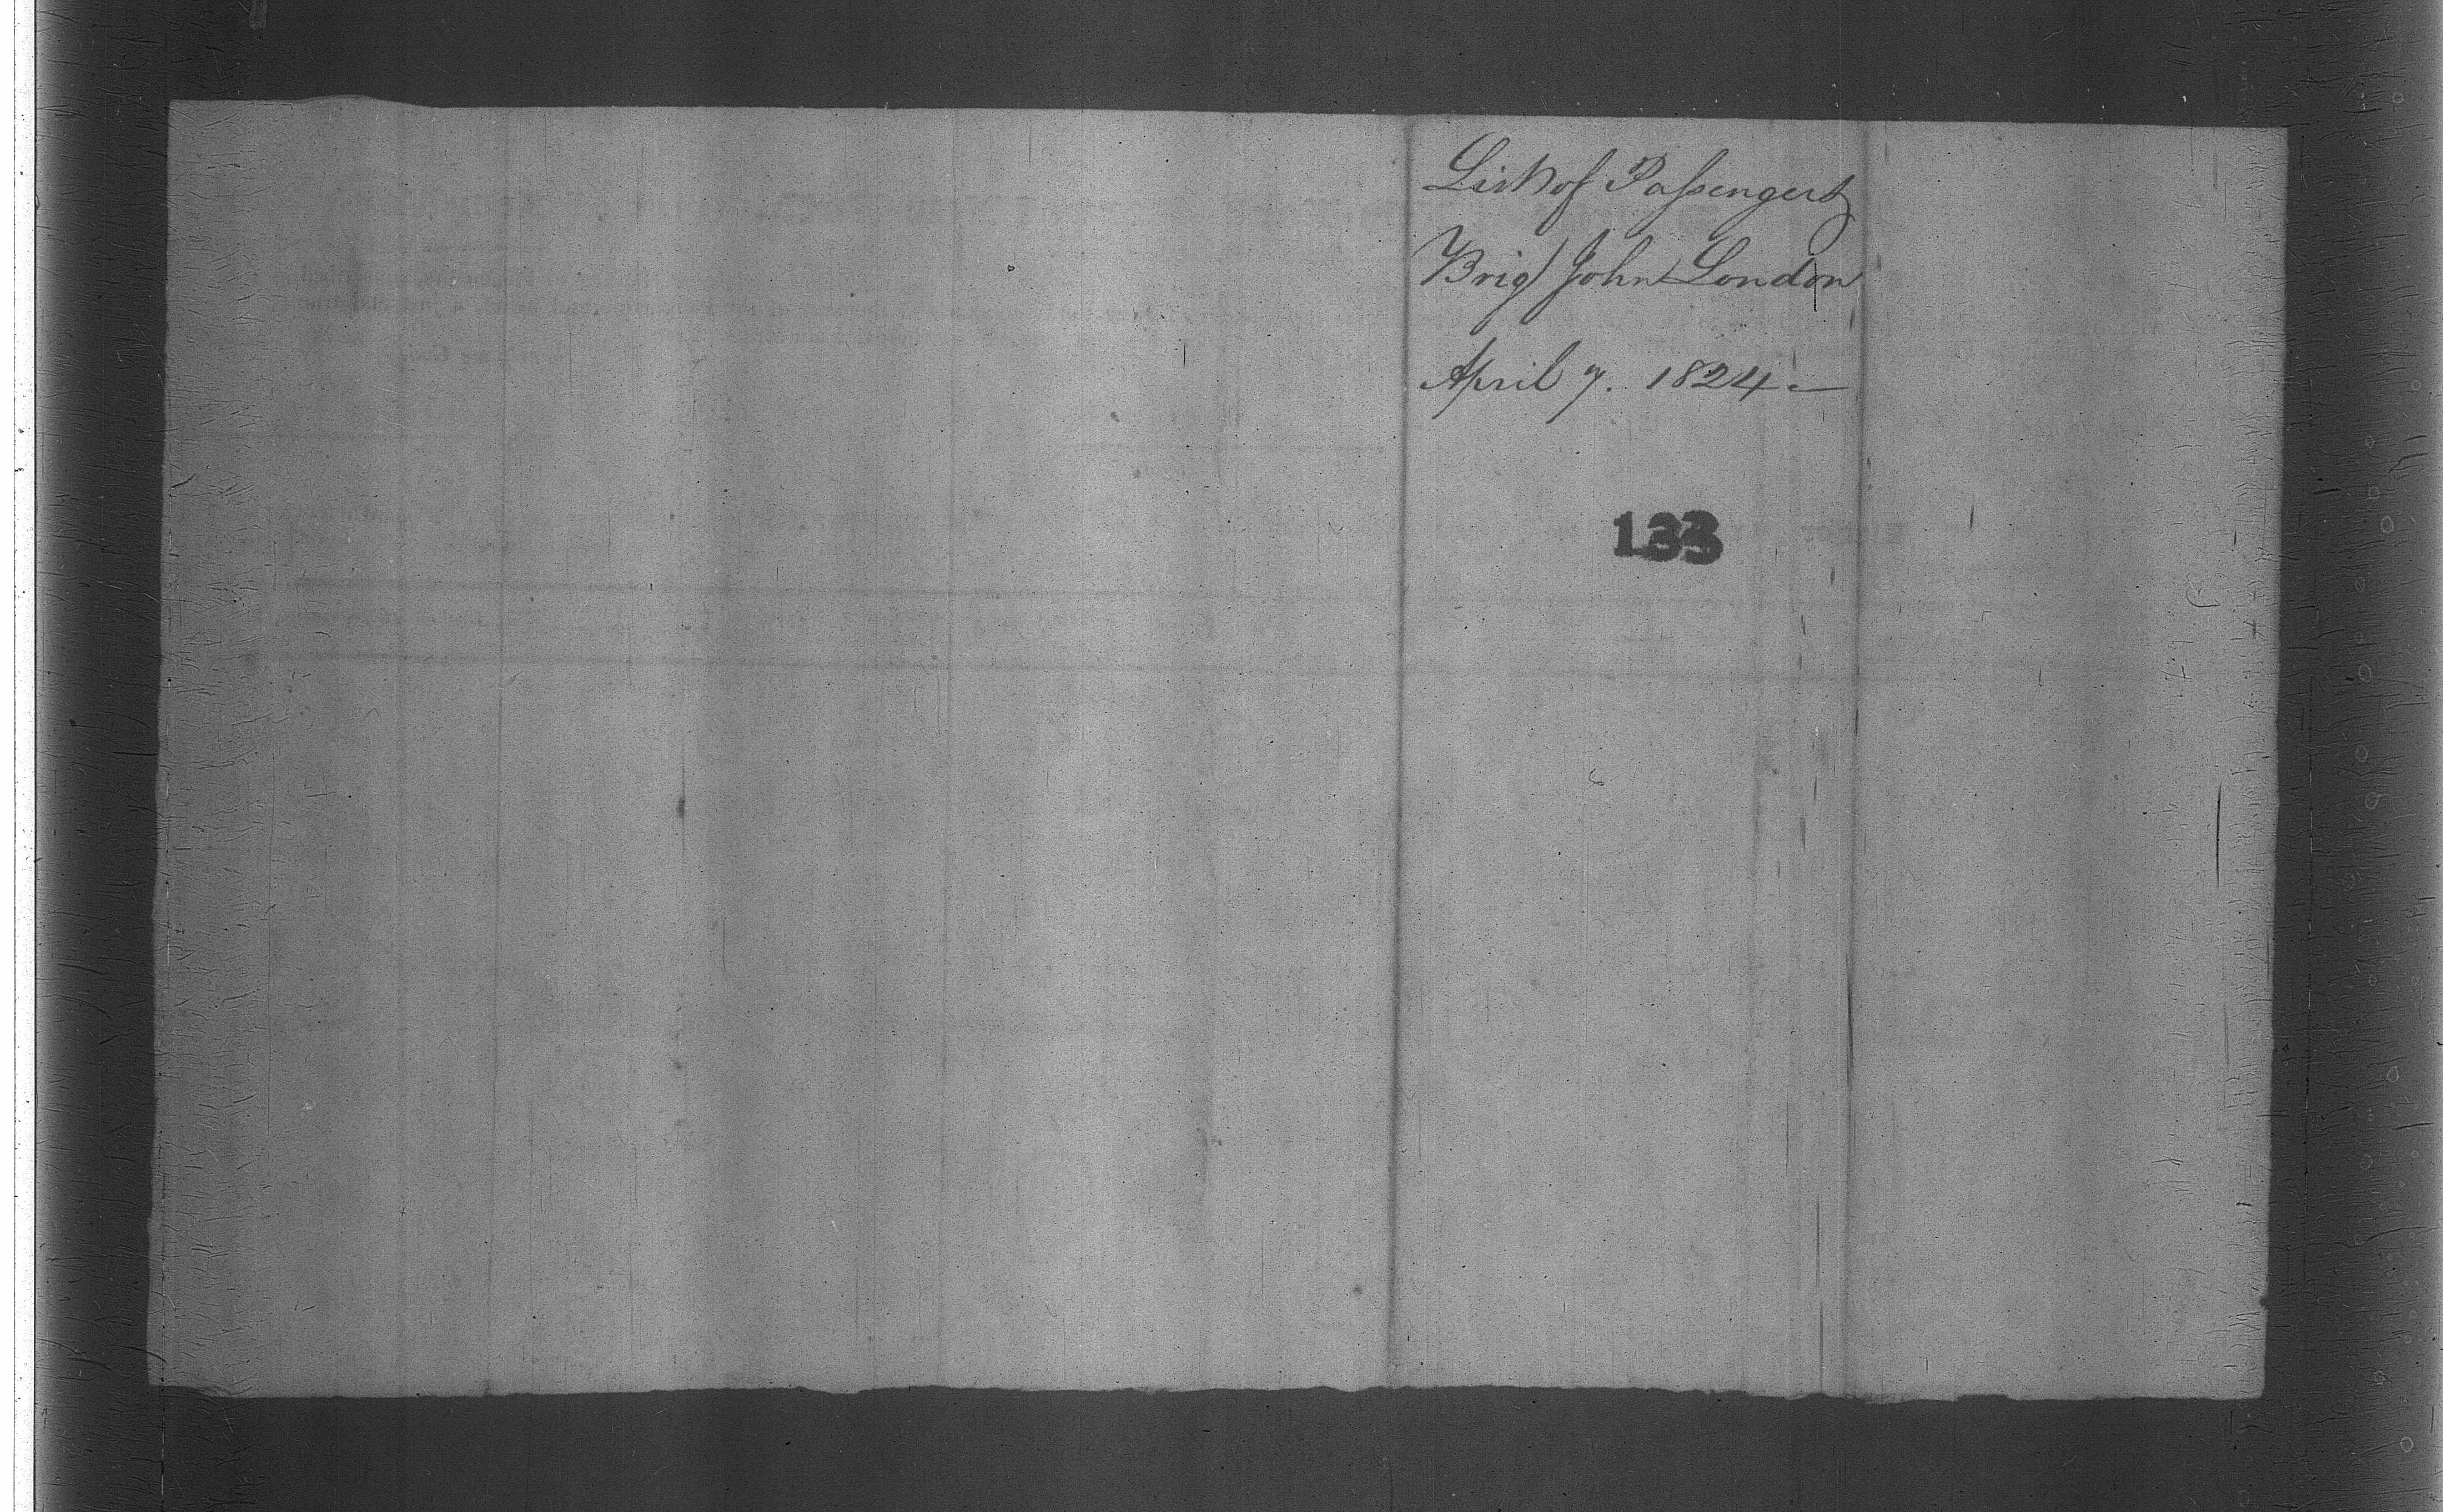 List of Passengers
Brig John London
April 7. 1824.—
133